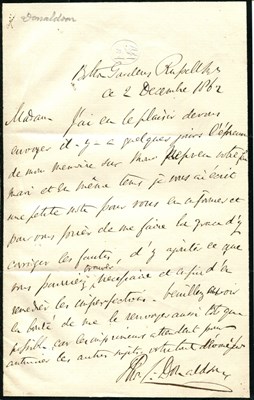 Donaldson
Bolton Gardens Russell Sq
ce 2 Decembre 1862
Madame J'ai eu le plaisir de vous
envoyer il-y-a quelques jours l'épreuve
de mon memoire sur Mons votre feu
mari et en même tems je vous ai écrit
une petite note pour vous en informer et
pour vous prier de me faire la grace d'y
corriger les fautes, d'y ajouter ce que
vous pourriez necessaire et afin d'en
remedier les imperfections - veuillez avoir
la bonté de me le renvoyer aussi tôt que
possible, car les imprimeurs attendent pour
les autres sujets
Donaldson